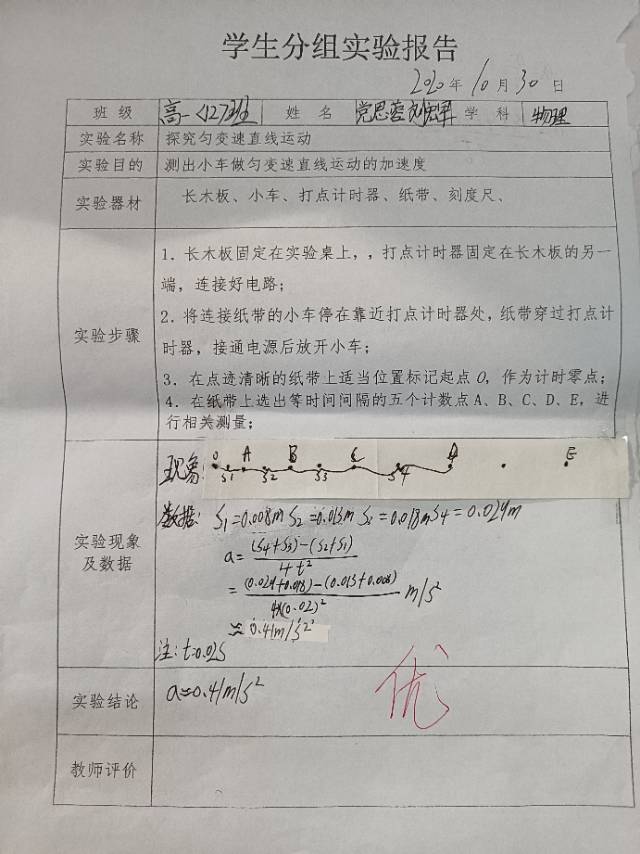 学生分组实验报告
2020年10月30日
班级 高一<12>班 姓名 党思蓉 学科 物理
实验名称 探究匀变速直线运动
实验目的 测出小车做匀变速直线运动的加速度
实验器材 长木板、小车、打点计时器、纸带、刻度尺、
实验步骤
1．长木板固定在实验桌上，，打点计时器固定在长木板的另一
端，连接好电路；
2．将连接纸带的小车停在靠近打点计时器处，纸带穿过打点计
时器，接通电源后放开小车；
3．在点迹清晰的纸带上适当位置标记起点O，作为计时零点；
4．在纸带上选出等时间间隔的五个计数点A、B、C、D、E，进
行相关测量；
实验现象及数据
现象: O A B C D E
S1 S2 S3 S4
数据: S1=0.008m S2=0.013m S3=0.018m S4=0.024m
a=(S4+S3)-(S2+S1)/4t²
=(0.024+0.018)-(0.013+0.008)/4×(0.02)² m/s²
≈0.41m/s²
注:t=0.02s
实验结论 a≈0.41m/s²
优
教师评价